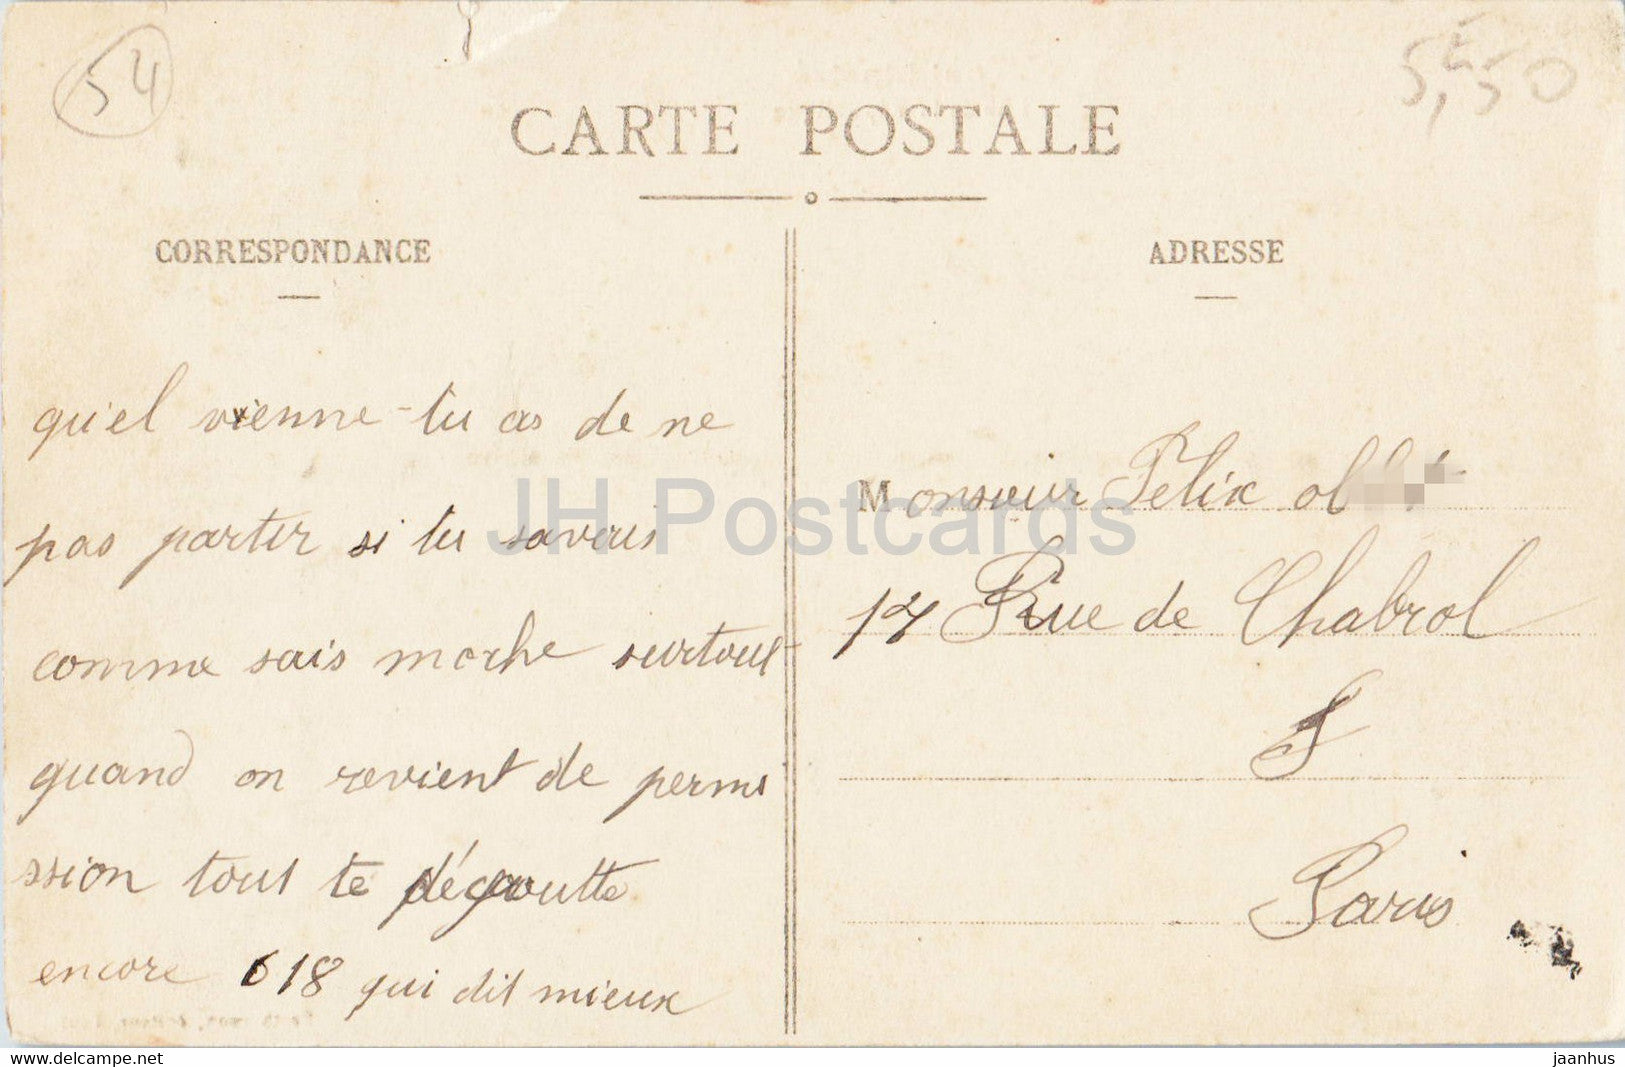 54
5,50
CARTE POSTALE
CORRESPONDANCE
ADRESSE
qu'el vienne-tu as de ne
pas partir si tu savais
comme sais moche surtout
quand on revient de permi
ssion tout te dégoutte
encore 618 qui dit mieux
Monsieur Felix
17 Rue de Chabrol
Paris
JH Postcards
https://www.delcampe.net
jaanhus